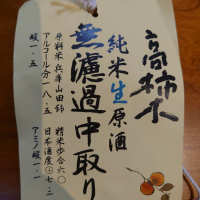 高柿木
純米生原酒
無濾過中取り
原料米兵庫山田錦 精米歩合六〇
アルコール分一八・五 日本酒度⊕七・二
酸一・五 アミノ酸一・一